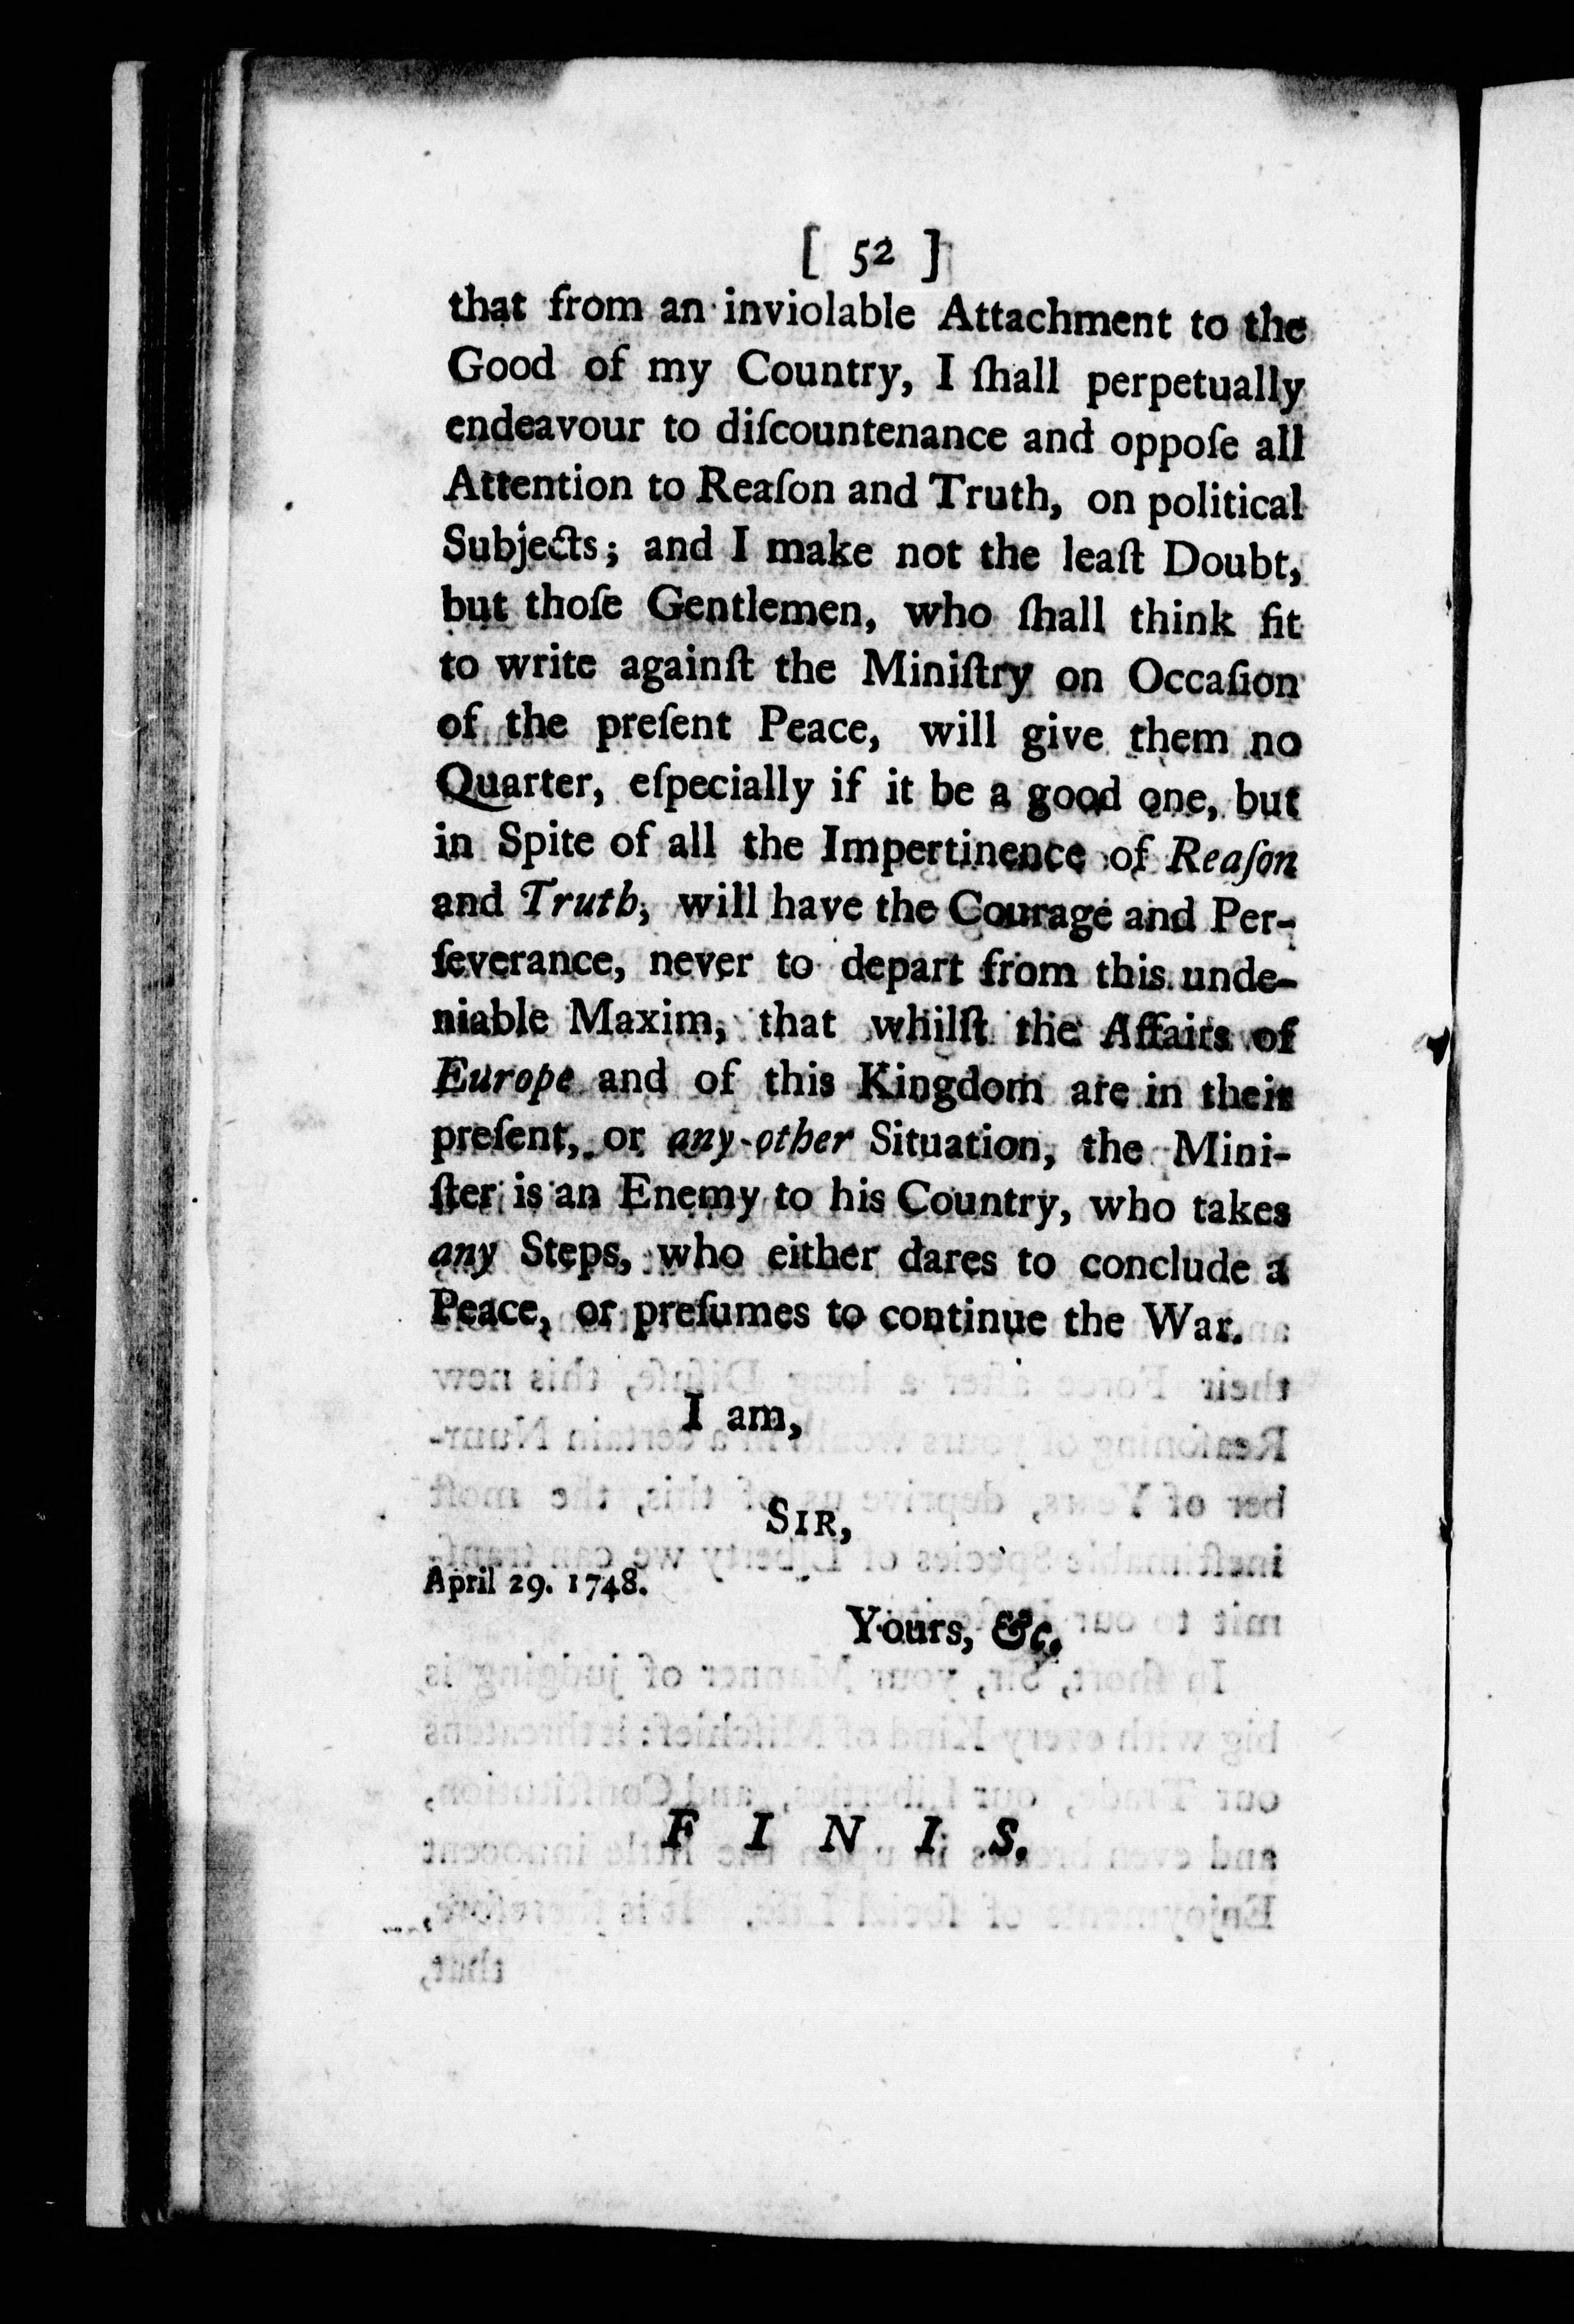 [ 52 ]
that from an inviolable Attachment to the
Good of my Country, I ſhall perpetually
endeavour to diſcountenance and oppoſe all
Attention to Reaſon and Truth, on political
Subjects; and I make not the leaſt Doubt,
but thoſe Gentlemen, who ſhall think fit
to write againſt the Miniſtry on Occaſion
of the preſent Peace, will give them no
Quarter, eſpecially if it be a good one, but
in Spite of all the Impertinence of Reaſon
and Truth, will have the Courage and Per-
ſeverance, never to depart from this unde-
niable Maxim, that whilſt the Affairs of
Europe and of this Kingdom are in their
preſent, or any other Situation, the Mini-
ſter is an Enemy to his Country, who takes
any Steps, who either dares to conclude a
Peace, or preſumes to continue the War.
I am,
SIR,
April 29. 1748.
Yours, &c.
F I N I S.